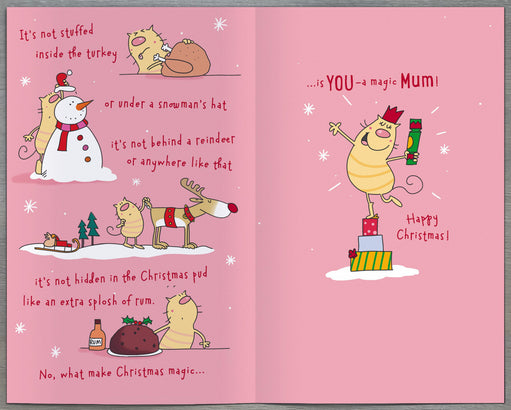 It's not stuffed
inside the turkey
or under a snowman's hat
it's not behind a reindeer
or anywhere like that
it's not hidden in the Christmas pud
like an extra splosh of rum.
RUM
No, what make Christmas magic...
...is YOU – a magic Mum!
Happy
Christmas!